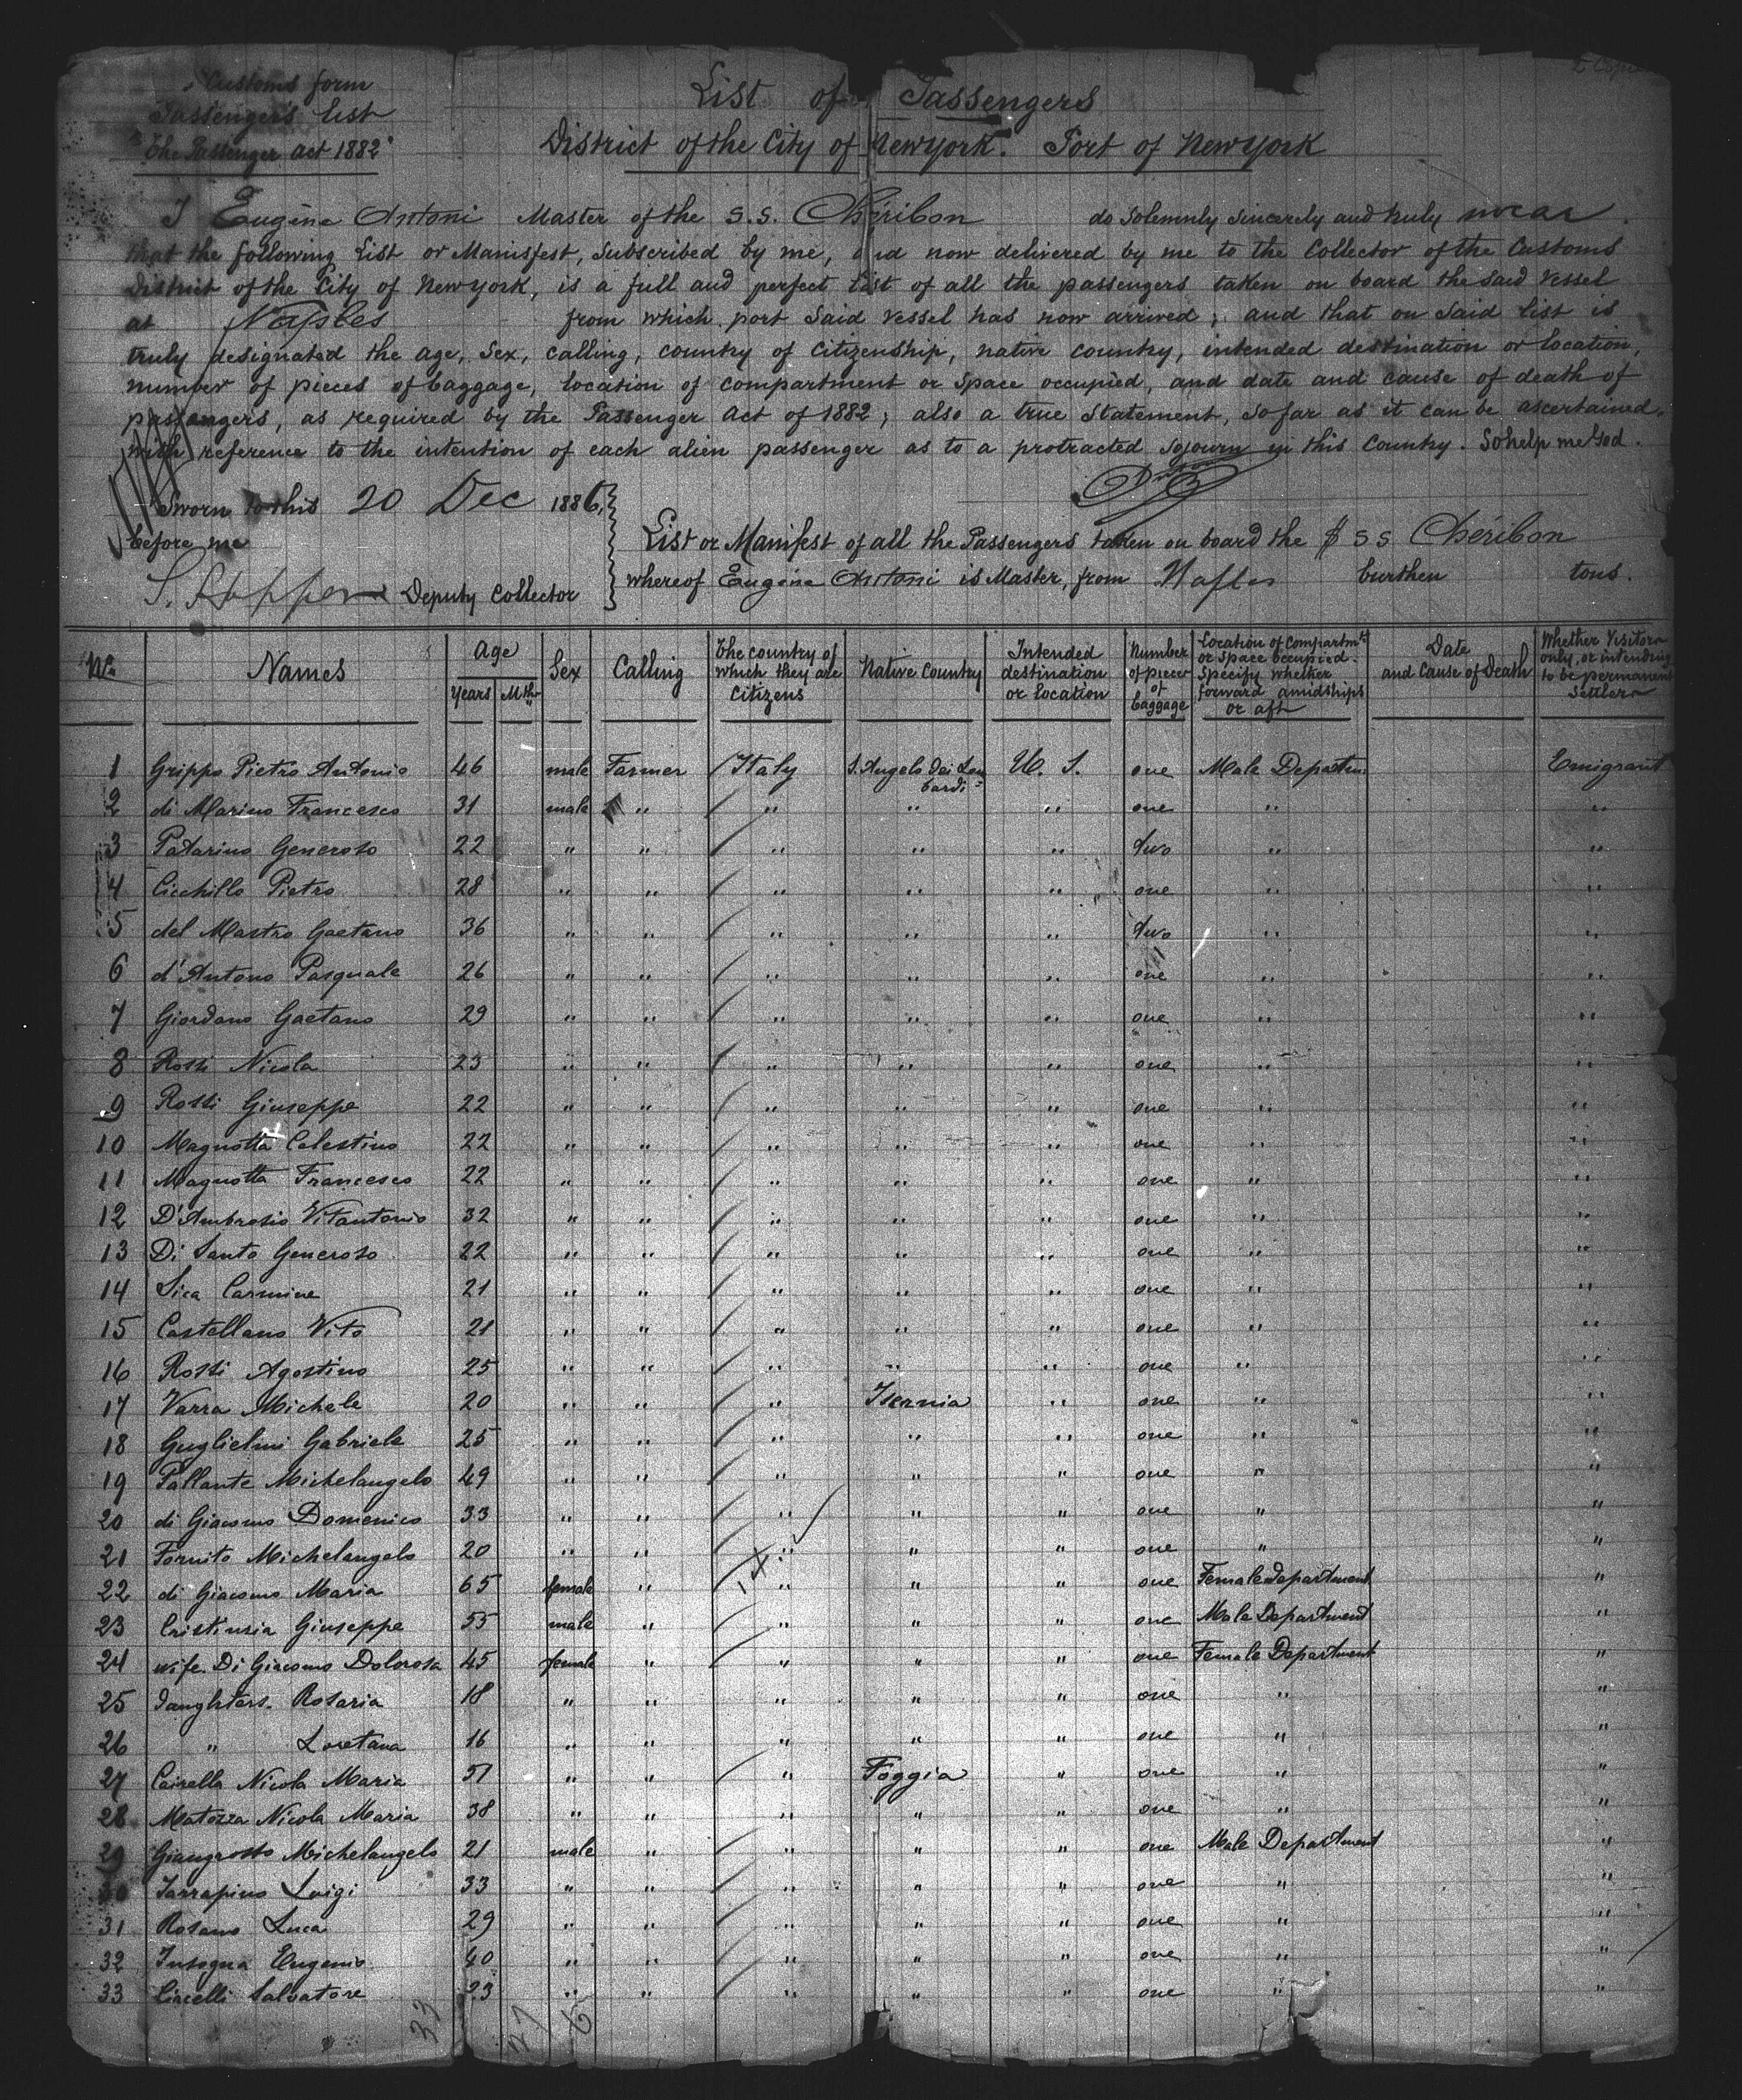 Customs form
Passengers list
"The Passenger act 1882"
List of Passengers
District of the City of New York. Port of New York
I Eugène Antoni Master of the S.S. Chéribon do solemnly sincerely and truly swear
that the following List or Manisfest, subscribed by me, and now delivered by me to the Collector of the Customs
District of the City of New York, is a full and perfect list of all the passengers taken on board the said vessel
at Naples from which port said vessel has now arrived; and that on said list is
truly designated the age, sex, calling, country of citizenship, native country, intended destination or location,
number of pieces of baggage, location of compartment or space occupied, and date and cause of death of
passengers, as required by the Passenger act of 1882; also a true statement, so far as it can be ascertained,
with reference to the intention of each alien passenger as to a protracted sojourn in this country. So help me God.
Sworn to this 20 Dec 1886,
before me
Deputy Collector
List or Manifest of all the Passengers taken on board the S S Chéribon
whereof Eugène Antoni is Master, from Naples burthen tons.
No. Names Age Years Mths Sex Calling The country of which they are Citizens Native Country Intended destination or location Number of pieces of baggage Location of compartmts or space occupied. Specify whether forward amidships or aft Date and cause of Death Whether Visitors only, or intending to be permanent Settlers
1 Grippo Pietro Antonio 46 male Farmer Italy S. Angelo dei Lombardi U. S. one Male Departm Emigrant
2 di Marino Francesco 31 male " " " " one " "
3 Patarino Generoso 22 " " " " " two " "
4 Cicchillo Pietro 28 " " " " " one " "
5 del Mastro Gaetano 36 " " " " " two " "
6 d'Antono Pasquale 26 " " " " " one " "
7 Giordano Gaetano 29 " " " " " one " "
8 Rossi Nicola 23 " " " " " one " "
9 Rossi Giuseppe 22 " " " " " one " "
10 Magnotta Celestino 22 " " " " " one " "
11 Magnotta Francesco 22 " " " " " one " "
12 D'Ambrosio Vitantonio 32 " " " " " one " "
13 Di Santo Generoso 22 " " " " " one " "
14 Sica Carmine 21 " " " " " one " "
15 Castellano Vito 21 " " " " " one " "
16 Rossi Agostino 25 " " " " " one " "
17 Varra Michele 20 " " " Isernia " one " "
18 Guglielmi Gabriele 25 " " " " " one " "
19 Pallante Michelangelo 49 " " " " " one " "
20 di Giacomo Domenico 33 " " " " " one " "
21 Fornito Michelangelo 20 " " " " " one " "
22 di Giacomo Maria 65 female " " " " one Female department "
23 Cristinsia Giuseppe 55 male " " " " one Male Department "
24 wife. Di Giacomo Dolorosa 45 female " " " " one Female Department "
25 daughters. Rosaria 18 " " " " " one " "
26 " Loretana 16 " " " " " one " "
27 Cairella Nicola Maria 51 " " " Foggia " one " "
28 Matozza Nicola Maria 38 " " " " " one " "
29 Giangrosso Michelangelo 21 male " " " " one Male Department "
30 Tarrapino Luigi 33 " " " " " one " "
31 Rosano Luca 29 " " " " " one " "
32 Insogna Eugenio 40 " " " " " one " "
33 Ciacelli Salvatore 23 " " " " " one " "
33 27 6